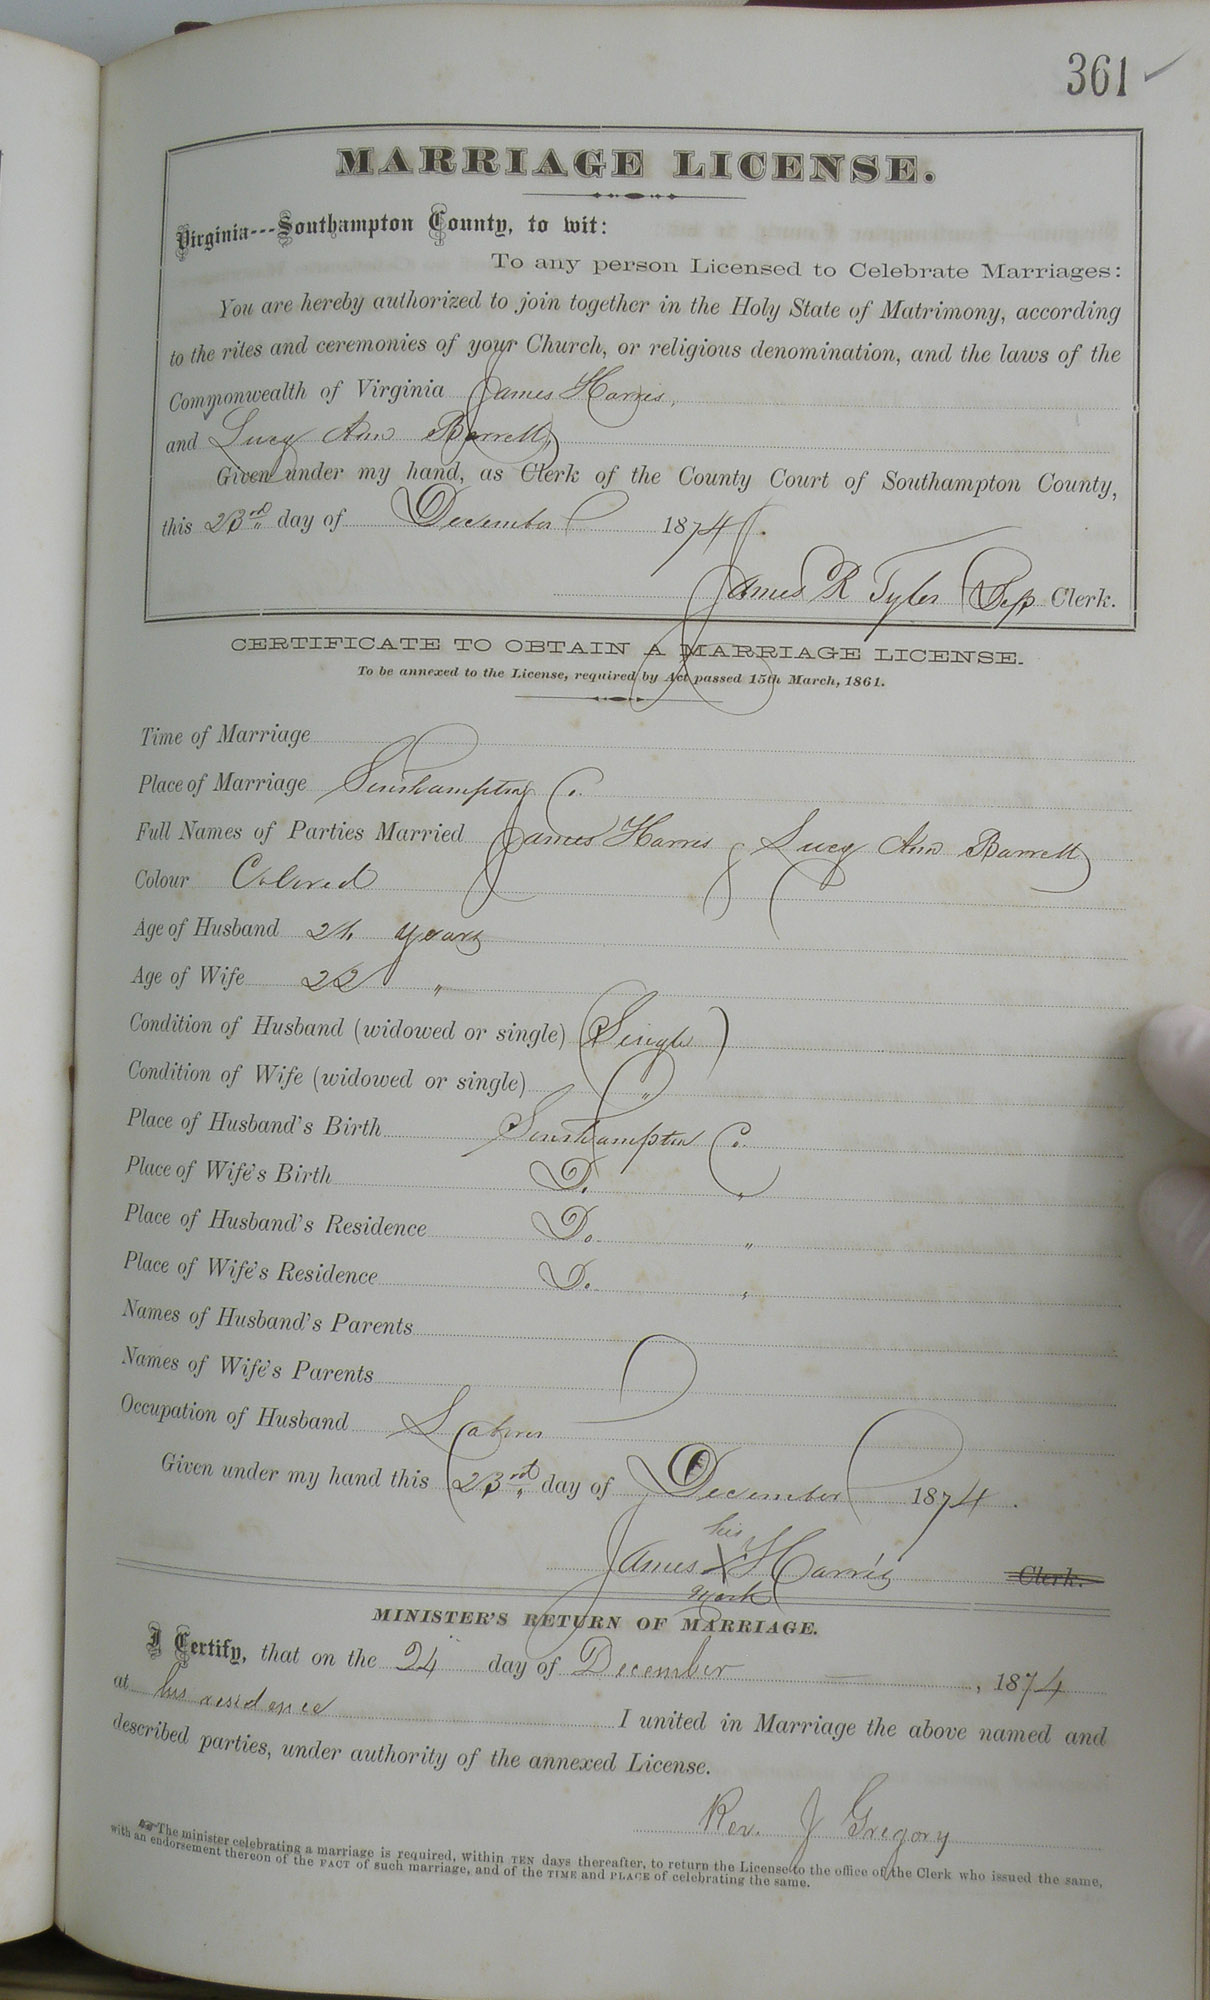 361
MARRIAGE LICENSE.
Virginia---Southampton County, to wit:
To any person Licensed to Celebrate Marriages:
You are hereby authorized to join together in the Holy State of Matrimony, according
to the rites and ceremonies of your Church, or religious denomination, and the laws of the
Commonwealth of Virginia James Harris,
and Lucy Ann Barrett,
Given under my hand, as Clerk of the County Court of Southampton County,
this 23rd day of December 1874.
James R Tyler Dep Clerk.
CERTIFICATE TO OBTAIN A MARRIAGE LICENSE.
To be annexed to the License, required by Act passed 15th March, 1861.
Time of Marriage
Place of Marriage Southampton Co.
Full Names of Parties Married James Harris & Lucy Ann Barrett
Colour Colored
Age of Husband years
Age of Wife 22 "
Condition of Husband (widowed or single) Single
Condition of Wife (widowed or single) "
Place of Husband's Birth Southampton Co.
Place of Wife's Birth Do. "
Place of Husband's Residence Do. "
Place of Wife's Residence Do. "
Names of Husband's Parents
Names of Wife's Parents
Occupation of Husband Laborer
Given under my hand this 23rd day of December 1874.
his
James X Harris Clerk.
mark
MINISTER'S RETURN OF MARRIAGE.
I Certify, that on the 24 day of December, 1874
at his residence I united in Marriage the above named and
described parties, under authority of the annexed License.
Rev. J Gregory
The minister celebrating a marriage is required, within TEN days thereafter, to return the License to the office of the Clerk who issued the same,
with an endorsement thereon of the FACT of such marriage, and of the TIME and PLACE of celebrating the same.